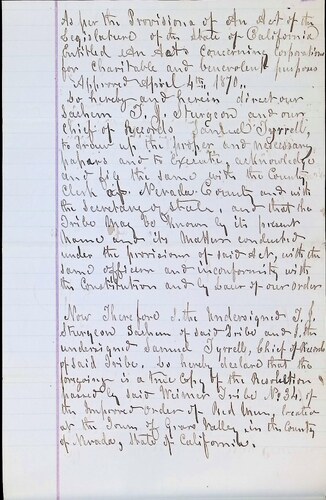 As per the Provisions of An Act of the
Legislature of the State of California
Entitled An Act Concerning Corporations
for Charitable and benevolent purposes
Approved April 4th, 1870.
Do hereby and herein direct our
Sachem T. J. Sturgeon and our
Chief of Records Samuel Tyrrell,
to draw up the proper and necessary
papers and to execute, acknowledge
and file the same with the County
Clerk of Nevada County and with
the Secretary of State, and that the
Tribe May be Known by its present
Name and its Matters conducted
under the provisions of said Act, with the
same officers and in conformity with
the Constitution and by Laws of our order
Now Therefore I, the Undersigned T. J.
Sturgeon Sachem of said Tribe and I, the
undersigned Samuel Tyrrell, Chief of Records
of said Tribe. Do hereby declare that the
foregoing is a true Copy of the Resolution
passed by said Weimer Tribe No 34, of
the Improved Order of Red Men, located
at the Town of Grass Valley, in the County
of Nevada, State of California.